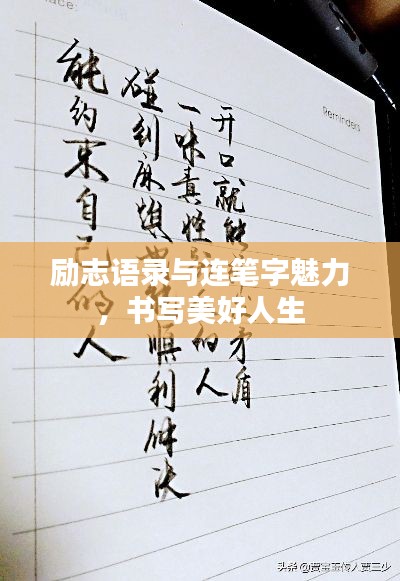 Reminders
开口就能矛盾
一味真性的人
碰到麻烦顺利解决
能约束自己的人
励志语录与连笔字魅力
，书写美好人生
头条